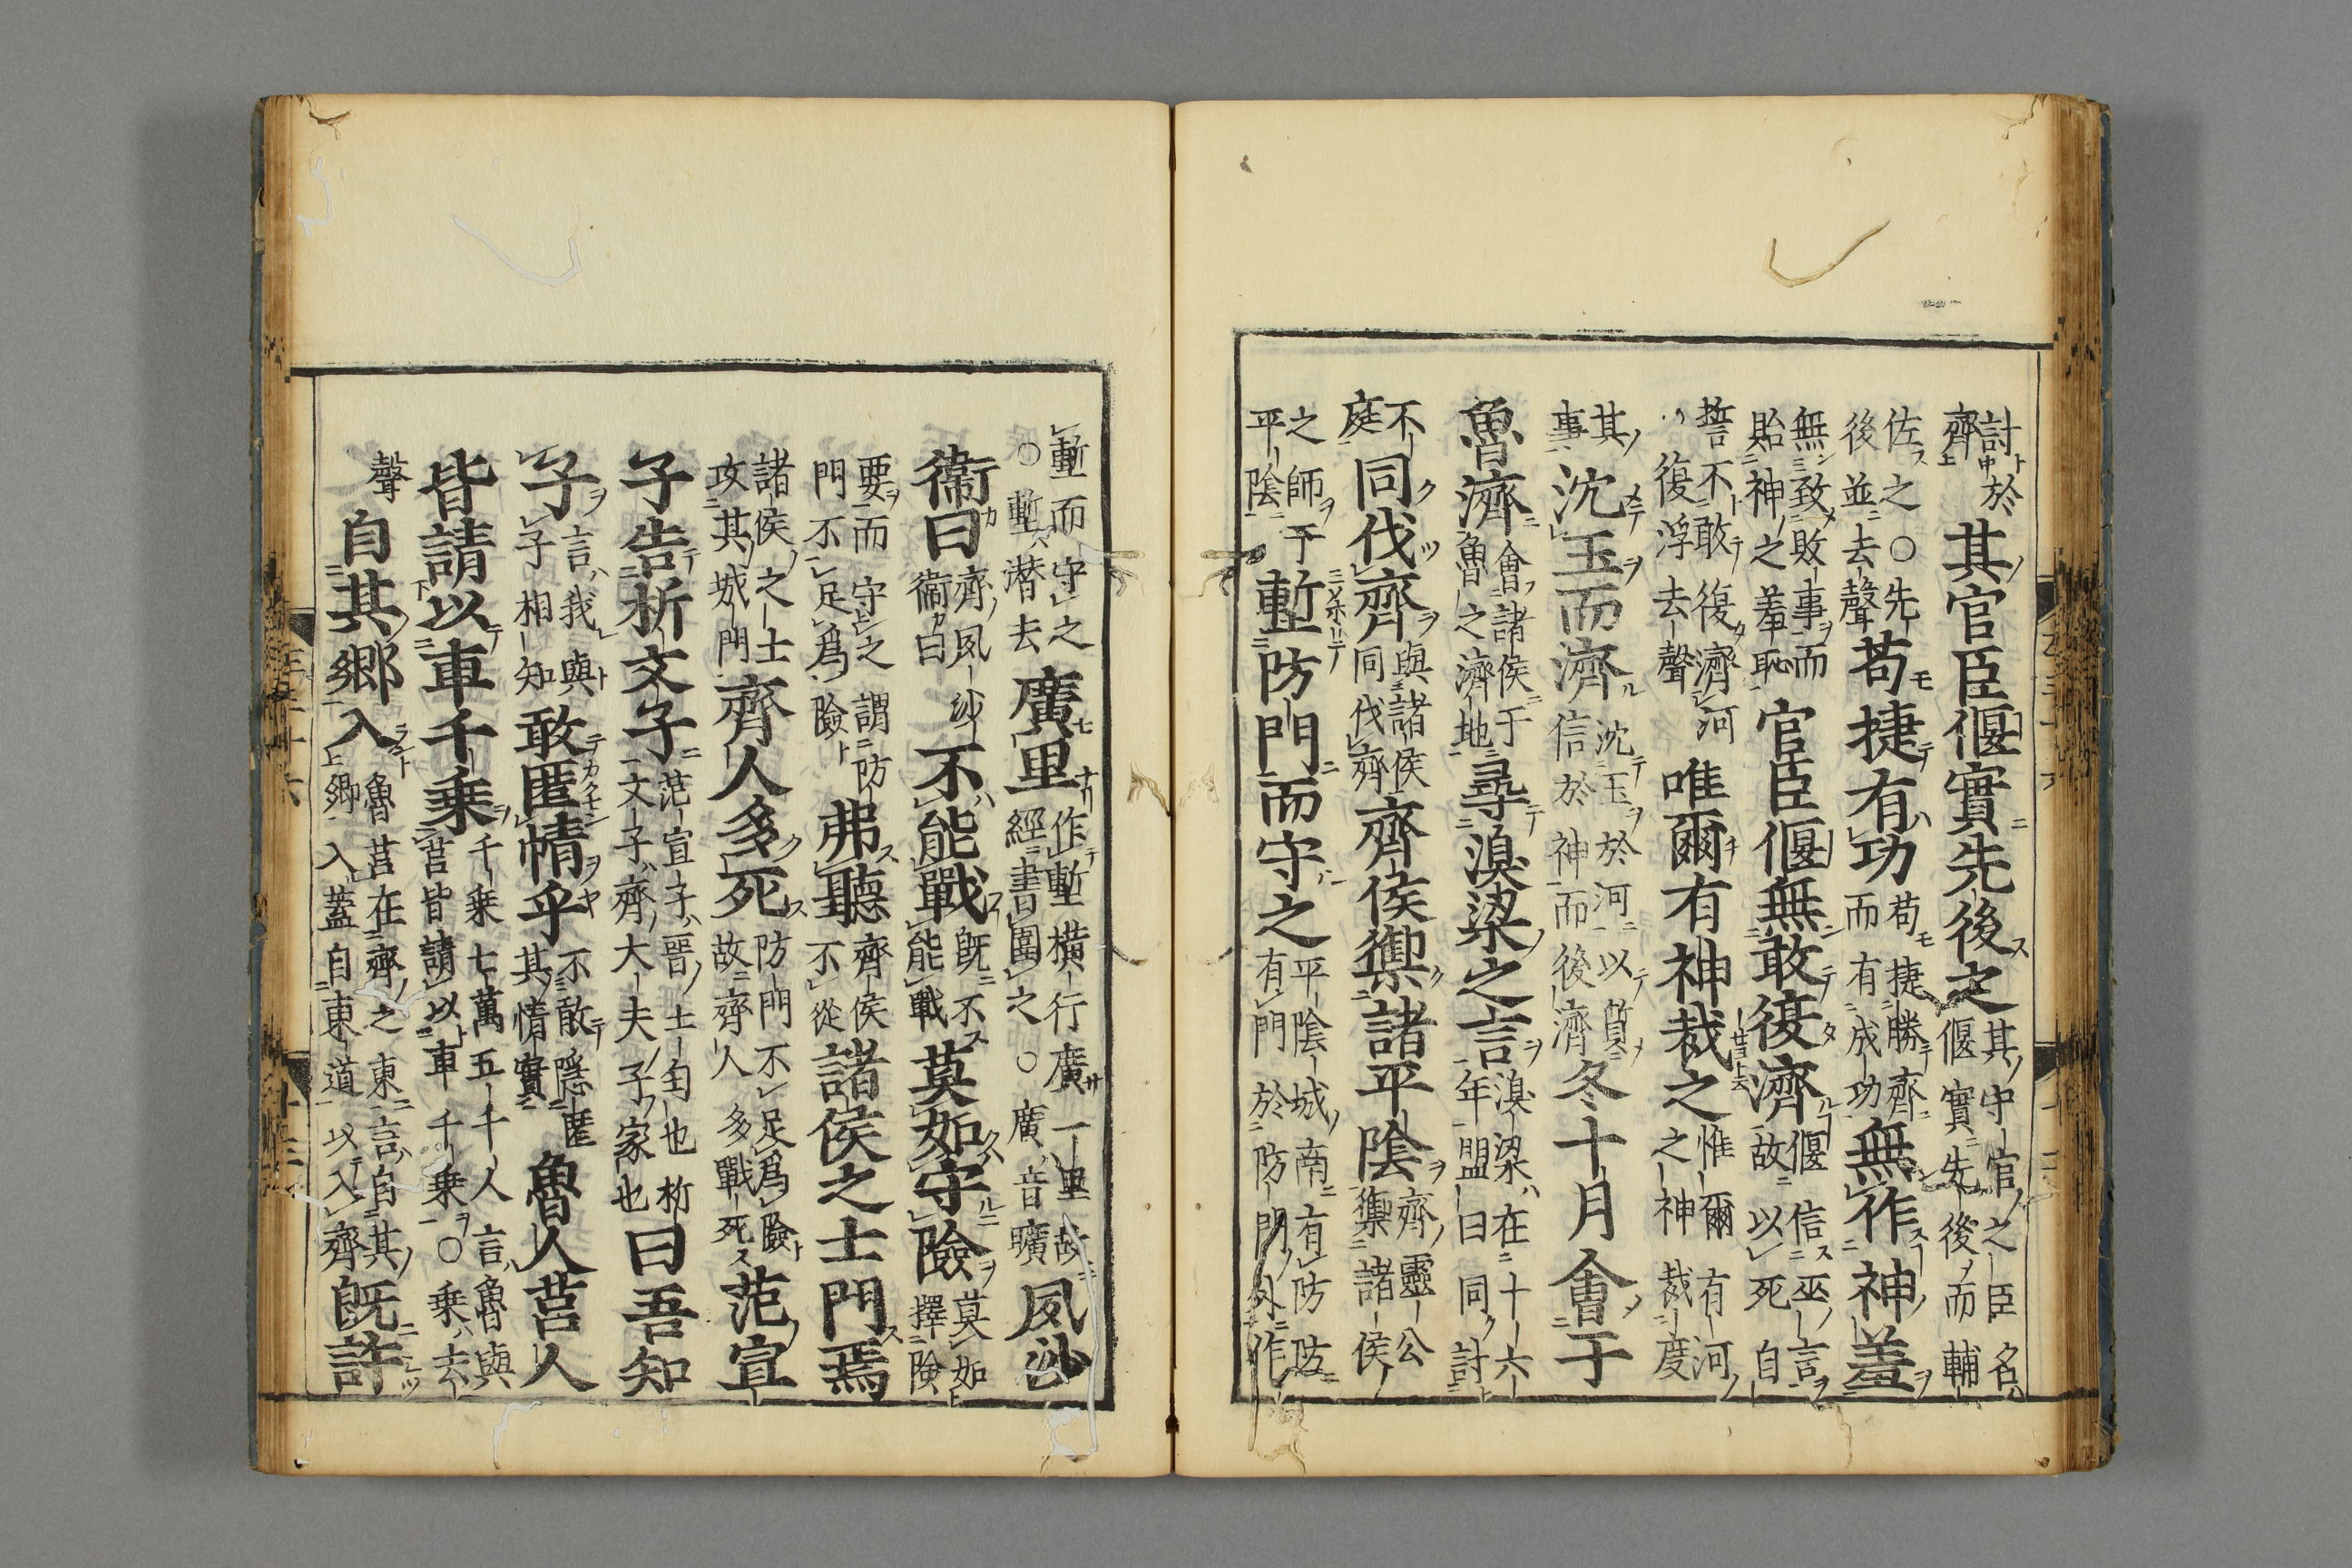 討於齊其官臣偃實先後之其守官之臣名偃實先後而輔
佐之○先後並去聲苟捷有功苟捷勝齊而有成功無作神羞
無致敗事而貽神之羞恥官臣偃無敢復濟偃信巫言故以死自
誓不敢復濟河復浮去聲唯爾有神裁之惟爾有河之神裁度
其事沈玉而濟沈玉於河以質信於神而後濟冬十月會于
魯濟會諸侯于魯之濟地尋湨梁之言湨梁在十六年盟曰同討
不庭同伐齊與諸侯同伐齊齊侯禦諸平陰齊靈公禦諸侯
之師于平陰塹防門而守之平陰城南有防防有門於防門外作
塹而守之○塹潜去廣里作塹横行廣一里故經書圍之○廣音曠夙沙
衞曰齊夙沙衞曰不能戰既不能戰莫如守險莫如擇險
要而守之謂防門不足爲險弗聽齊侯不從諸侯之士門焉
諸侯之士攻其城門齊人多死防門不足爲險故齊人多戰死范宣
子告析文子范宣子晉士匄也析文子齊大夫子家也曰吾知
子言我與子相知敢匿情乎不敢隱匿其情實魯人莒人
皆請以車千乗千乗七萬五千人言魯與莒皆請以車千乗○乗去
聲自其郷入魯莒在齊之東言自其郷入蓋自東道以入齊既許